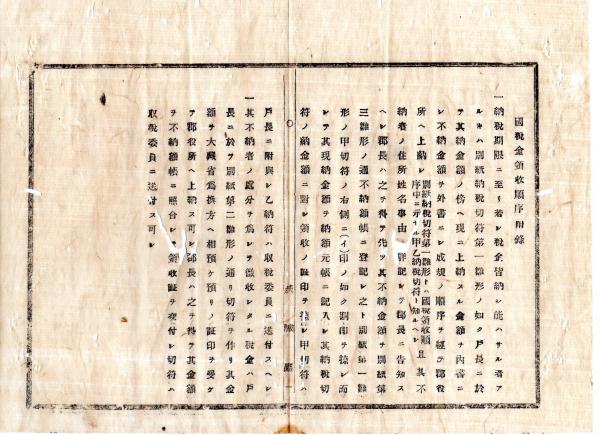 國税金領收順序附錄
一納税期限ニ至リ若シ税金皆納シ能ハサル者ア
ルキハ別紙納税切符第一雛形ノ如ク戸長ニ於
テ其納金額ノ傍ヘ現ニ上納スル金額ヲ内書ニ
シ不納金額ヲ外書ニシ成規ノ順序ヲ經テ郡役
所ヘ上納シ
別紙納税切符第一雛形トハ國税領收順
序中ニ示セル甲乙納税切符ト知ルヘシ
且其不
納者ノ住所姓名事由 詳記シテ郡長ニ告知ス
ヘシ郡長ハ之ヲ得テ先ツ其不納金額ヲ別紙第
三雛形ノ通不納額帳ニ登記シ之ト別紙第一雛
形ノ甲切符ノ右側ニ(イ)印ノ如ク割印ヲ捺シ而
シテ其現納金額ヲ納額元帳ニ記入シ其納税切
符ノ納金額ニ對シ領收ノ証印ヲ捺シ甲切符ハ
戸長ニ附與シ乙納符ハ收税委員ニ送付スヘシ
一其不納者ノ處分ヲ爲シテ徴收シタル税金ハ戸
長ニ於テ別紙第二雛形ノ通リ切符ヲ作リ其金
額ヲ大藏省爲換方ヘ相預ケ預リノ証印ヲ受ケ
テ郡役所ヘ上納ス可シ郡長ハ之ヲ得テ其金額
ヲ不納額帳ニ照合シテ領收証ヲ交付シ切符ハ
收税委員ニ送付ス可シ
茨城縣